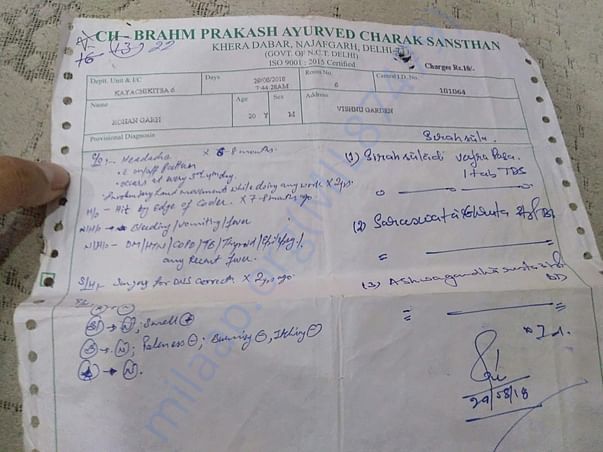 CH - BRAHM PRAKASH AYURVED CHARAK SANSTHAN
KHERA DABAR, NAJAFGARH, DELHI-
(GOVT. OF N.C.T. DELHI)
ISO 9001 : 2015 Certified
Charges Rs.10/-
Deptt. Unit & I/C
Days
Room No.
Central I.D. No.
KAYACHIKITSA 6
29/08/2018
7:44:28AM
6
101064
Name
Age
Sex
Address
ROHAN GARG
20 Y
M
VISHNU GARDEN
Provisional Diagnosis
C/o :- Headache x 6-8 months
on/off Pattern
occurs at every 3rd, 4th day.
Involuntary hand movement while doing any work x 2yrs.
H/o - Hit by edge of Cooler. x 7-8 months ago
N/H/o - Bleeding/Vomiting/fever
N/H/o - DM/HTN/COPD/TB/Thyroid/Epilepsy/
any Recent fever.
S/H - Surgery for DNS correct. x 2yrs ago
N; Smell +
N; Paleness -; Burning -, Itching -
N.
Sirah sula.
(1) Sirahsuladi vajra Rasa.
1 tab TDS
(2) Saraswata Ghrita
(3) Ashwagandha
BD
x 7d.
29/08/18
milaap.org